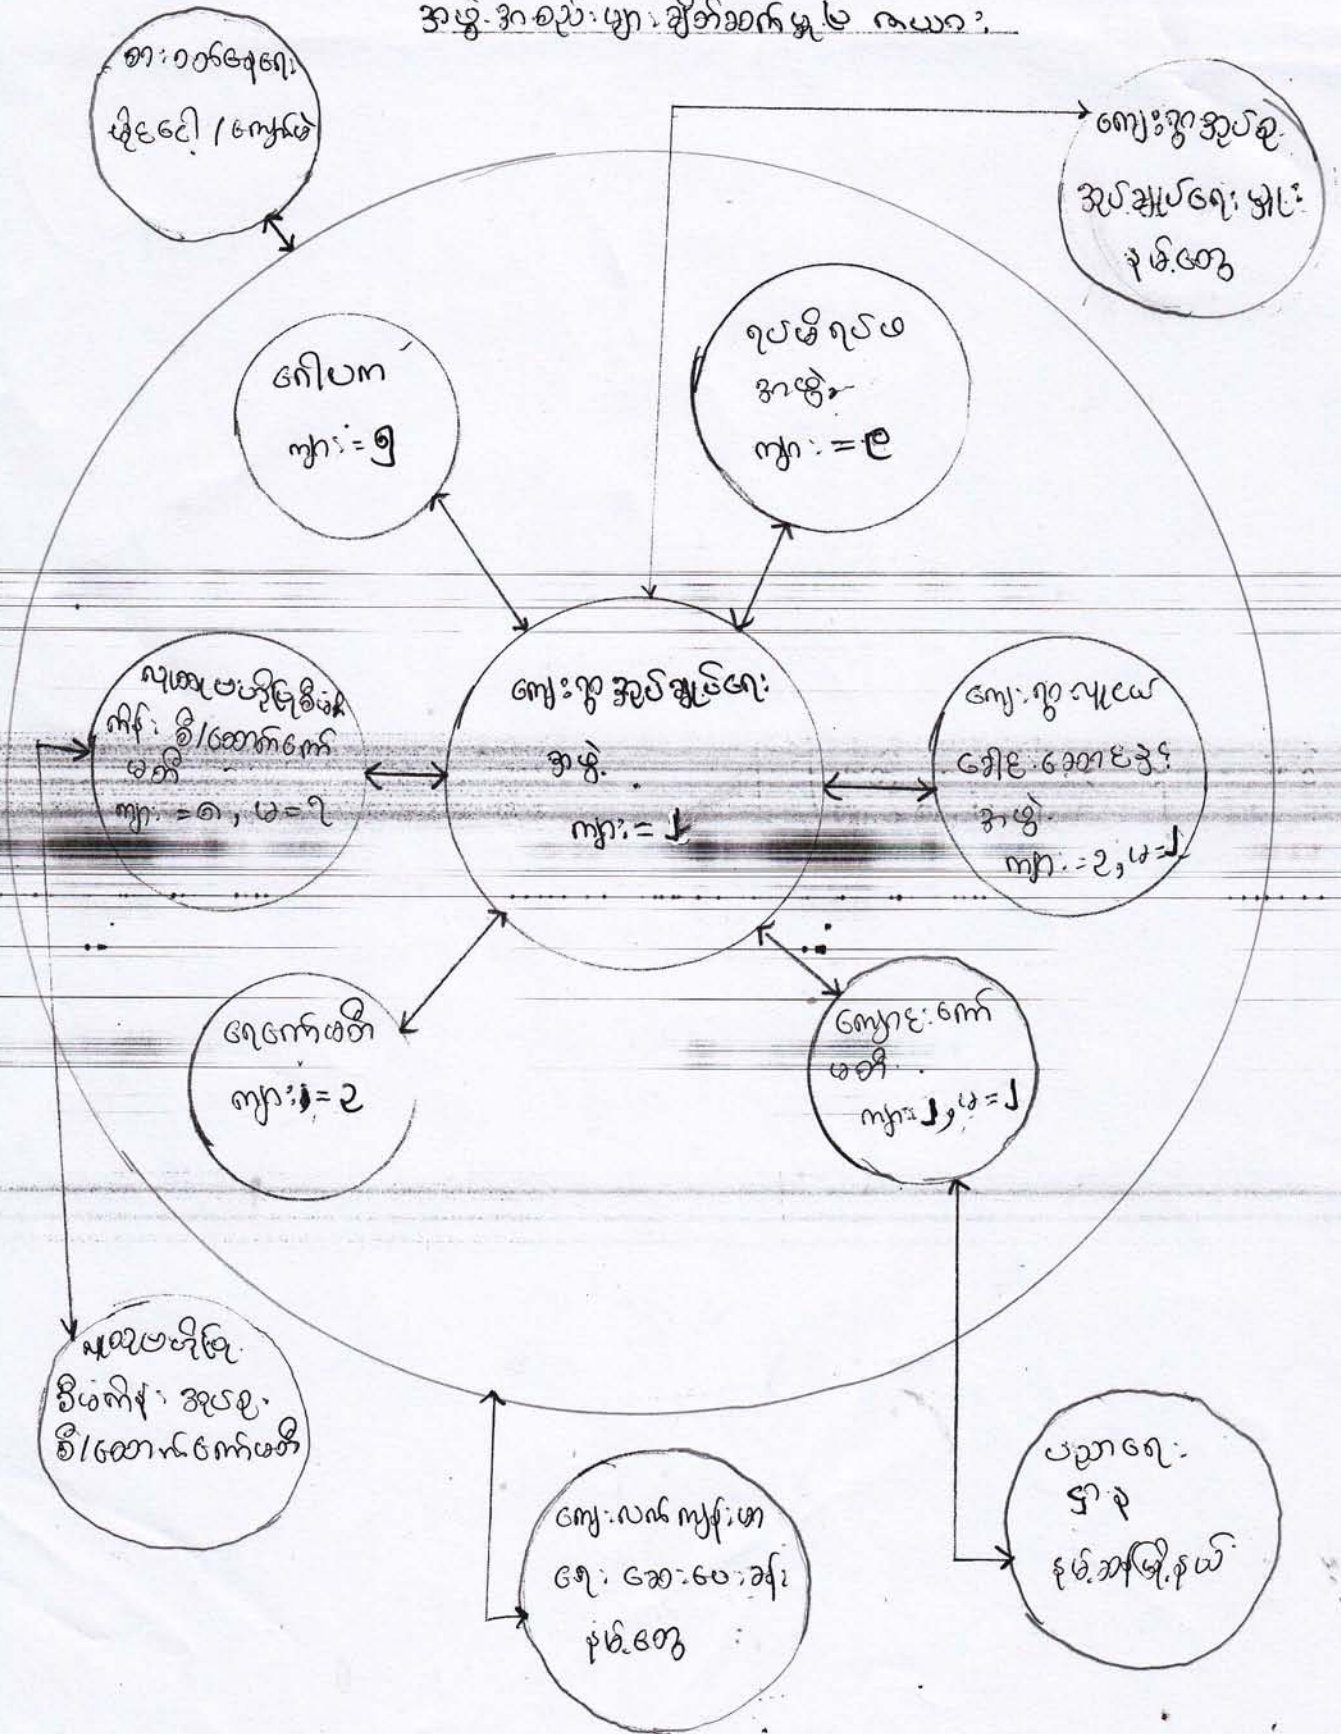 အဖွဲ့အစည်းများချိတ်ဆက်မှုပြ ဇယား
စားဝတ်နေရေး
ကျေးရွာအုပ်စု
အုပ်ချုပ်ရေးမှူး
နမ့်တွေ
ဂေါပက
ကျား = ၅
ရပ်မိရပ်ဖ
အဖွဲ့
ကျား = ၉
လူထုဗဟိုပြုစီမံ
ကိန်း စီ/ထောက်ကော်
မတီ
ကျား = ၈, မ = ၇
ကျေးရွာအုပ်ချုပ်ရေး
အဖွဲ့
ကျား = ၂
ကျေးရွာလူငယ်
ခေါင်းဆောင်
အဖွဲ့
ကျား = ၃, မ = ၂
ရေကော်မတီ
ကျား = ၃
ကျောင်းကော်
မတီ
ကျား = ၂, မ = ၂
လူထုဗဟိုပြု
စီမံကိန်း အုပ်စု
စီ/ထောက်ကော်မတီ
ကျေးလက်ကျန်းမာ
ရေး ဆေးပေးခန်း
နမ့်တွေ
ပညာရေး
ဌာန
နမ့်ဆန်မြို့နယ်